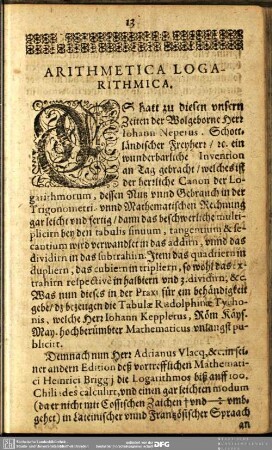 13
ARITHMETICA LOGA-
RITHMICA.
ES hatt zu diesen vnsern
Zeiten der Wolgeborne Herr
Iohann Neperus. Schott-
ländischer Freyherr / ic. ein
wunderbarliche Invention
an Tag gebracht / welches ist
der herrliche Canon der Lo-
garithmorum, dessen Nutz vnnd Gebrauch in der
Trigonometri. vnnd Mathematischen Rechnung
gar leicht vnd fertig / dann das beschwerliche multi-
plicirn bey den tabulis sinuum, tangentium & se-
cantium wird verwandlet in das addirn, vnnd das
dividirn in das subtrahirn. Item das quadriern in
duplieren, das cubiern in tripliern, so wohl das ex-
trahirn respectivè in halbiern vnd 3. dividirn, &c.
Was nun dieses in der Praxi für ein behändigkeit
gebe / bezeugen die Tabulæ Rudolphinæ Tycho-
nis, welche Herr Iohann Kepplerus, Röm Käys.
May. hochberümbter Mathematicus vnlängst pu-
blicirt.
Demnach nun Herr Adrianus Vlacq, &c. in sei-
ner andern Edition deß vortrefflichen Mathemati-
ci Heinrici Briggij die Logarithmos biß auff 100.
Chiliades calculirt, vnd einen gar leichten modum
(da er nicht mit Cossischen Zaichen † vnd ÷ vmb-
gehet) in Lateinischer vnnd Frantzösischer Spraach
an